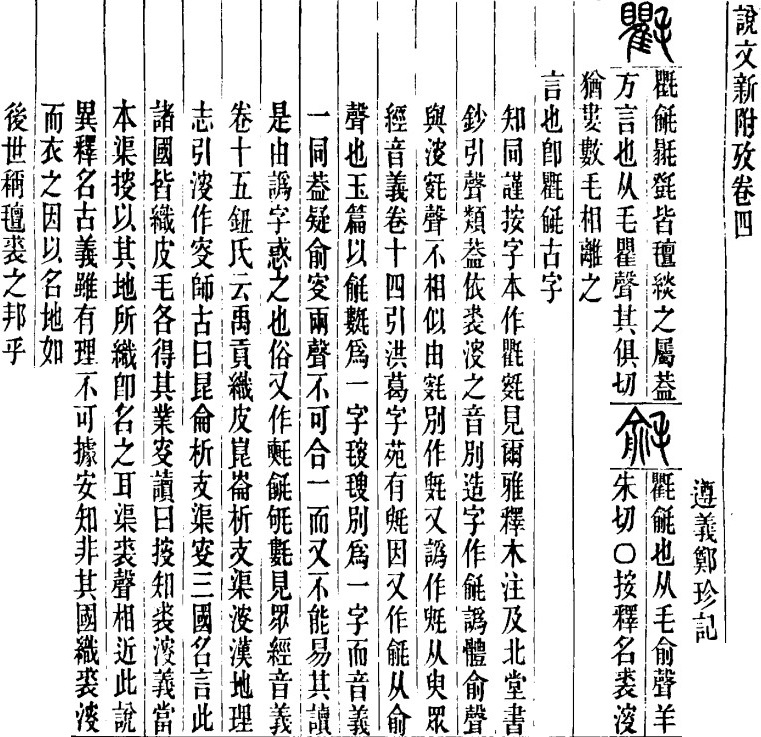 說文新附攷卷四
遵義鄭珍記
氍
氍毹皆氊緂之屬蓋
方言也从毛瞿聲其俱切
毹
氍毹也从毛俞聲羊
朱切〇按釋名裘溲
猶婁數毛相離之
言也卽氍毹古字
知同謹按字本作氍見爾雅釋木注及北堂書
鈔引聲類蓋依裘溲之音別造字作毹譌體俞聲
與溲聲不相似由別作又譌作从臾眾
經音義卷十四引洪葛字苑有因又作毹从俞
聲也玉篇以毹爲一字別爲一字而音義
一同蓋疑俞叜兩聲不可合一而又不能易其讀
是由譌字惑之也俗又作見眾經音義
卷十五鈕氏云禹貢織皮崑崙析支渠溲漢地理
志引溲作叜師古曰昆侖析支渠叜三國名言此
諸國皆織皮毛各得其業叜讀曰搜知裘溲義當
本渠搜以其地所織卽名之耳渠裘聲相近此說
異釋名古義雖有理不可據安知非其國織裘溲
而衣之因以名地如
後世稱氊裘之邦乎